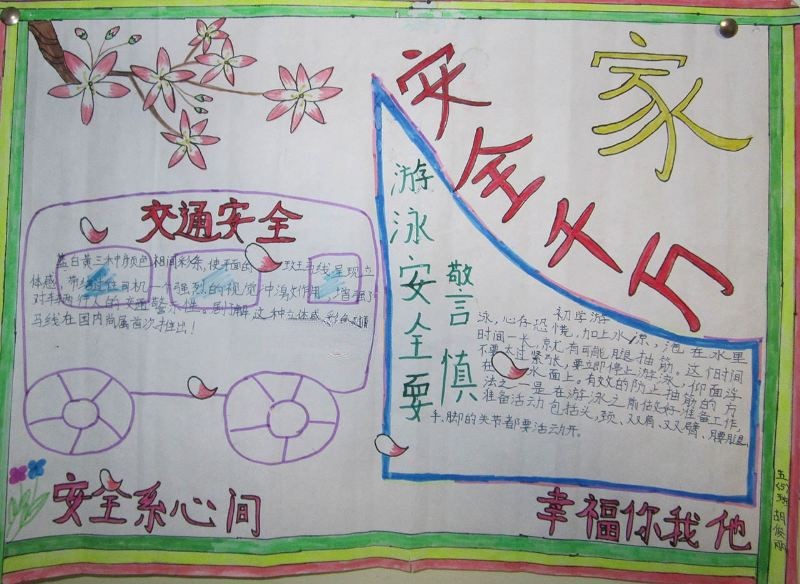 安全千万家
交通安全
蓝白黄三种颜色相间彩条,使平面的 斑马线呈现立
体感,带给过往司机一个强烈的视觉冲溴作用,增强了
对手两行人的交通警示性。剧了解这种立体感彩色斑
马线在国内尚属首次推出!
游泳安全要
警慎
初学游
泳,心存恐慌,加上水凉,泡在水里
时间一长,就有可能腿抽筋。这个时间
不要太过紧张,要立即停上游泳,仰面浮
在 水面上。有效的防止抽筋的方
法之一是在游泳之前做好准备工作,
准备活动包括头,颈、双肩、双臂、腰腿、
手、脚的关节都要活动开。
安全系心间
幸福你我他
五(5)班 胡俊